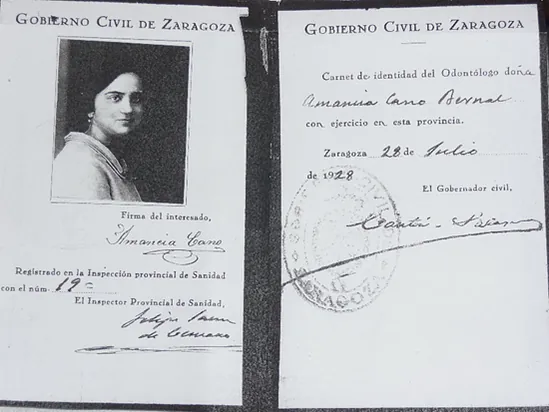 GOBIERNO CIVIL DE ZARAGOZA
Firma del interesado,
Amancia Cano
Registrado en la Inspección provincial de Sanidad
con el núm. 19=
El Inspector Provincial de Sanidad,
de
GOBIERNO CIVIL DE ZARAGOZA
Carnet de identidad del Odontólogo doña
Amancia Cano Bernal
con ejercicio en esta provincia.
Zaragoza 28 de Julio
de 1928
El Gobernador civil,
CIVIL
ZARAGOZA